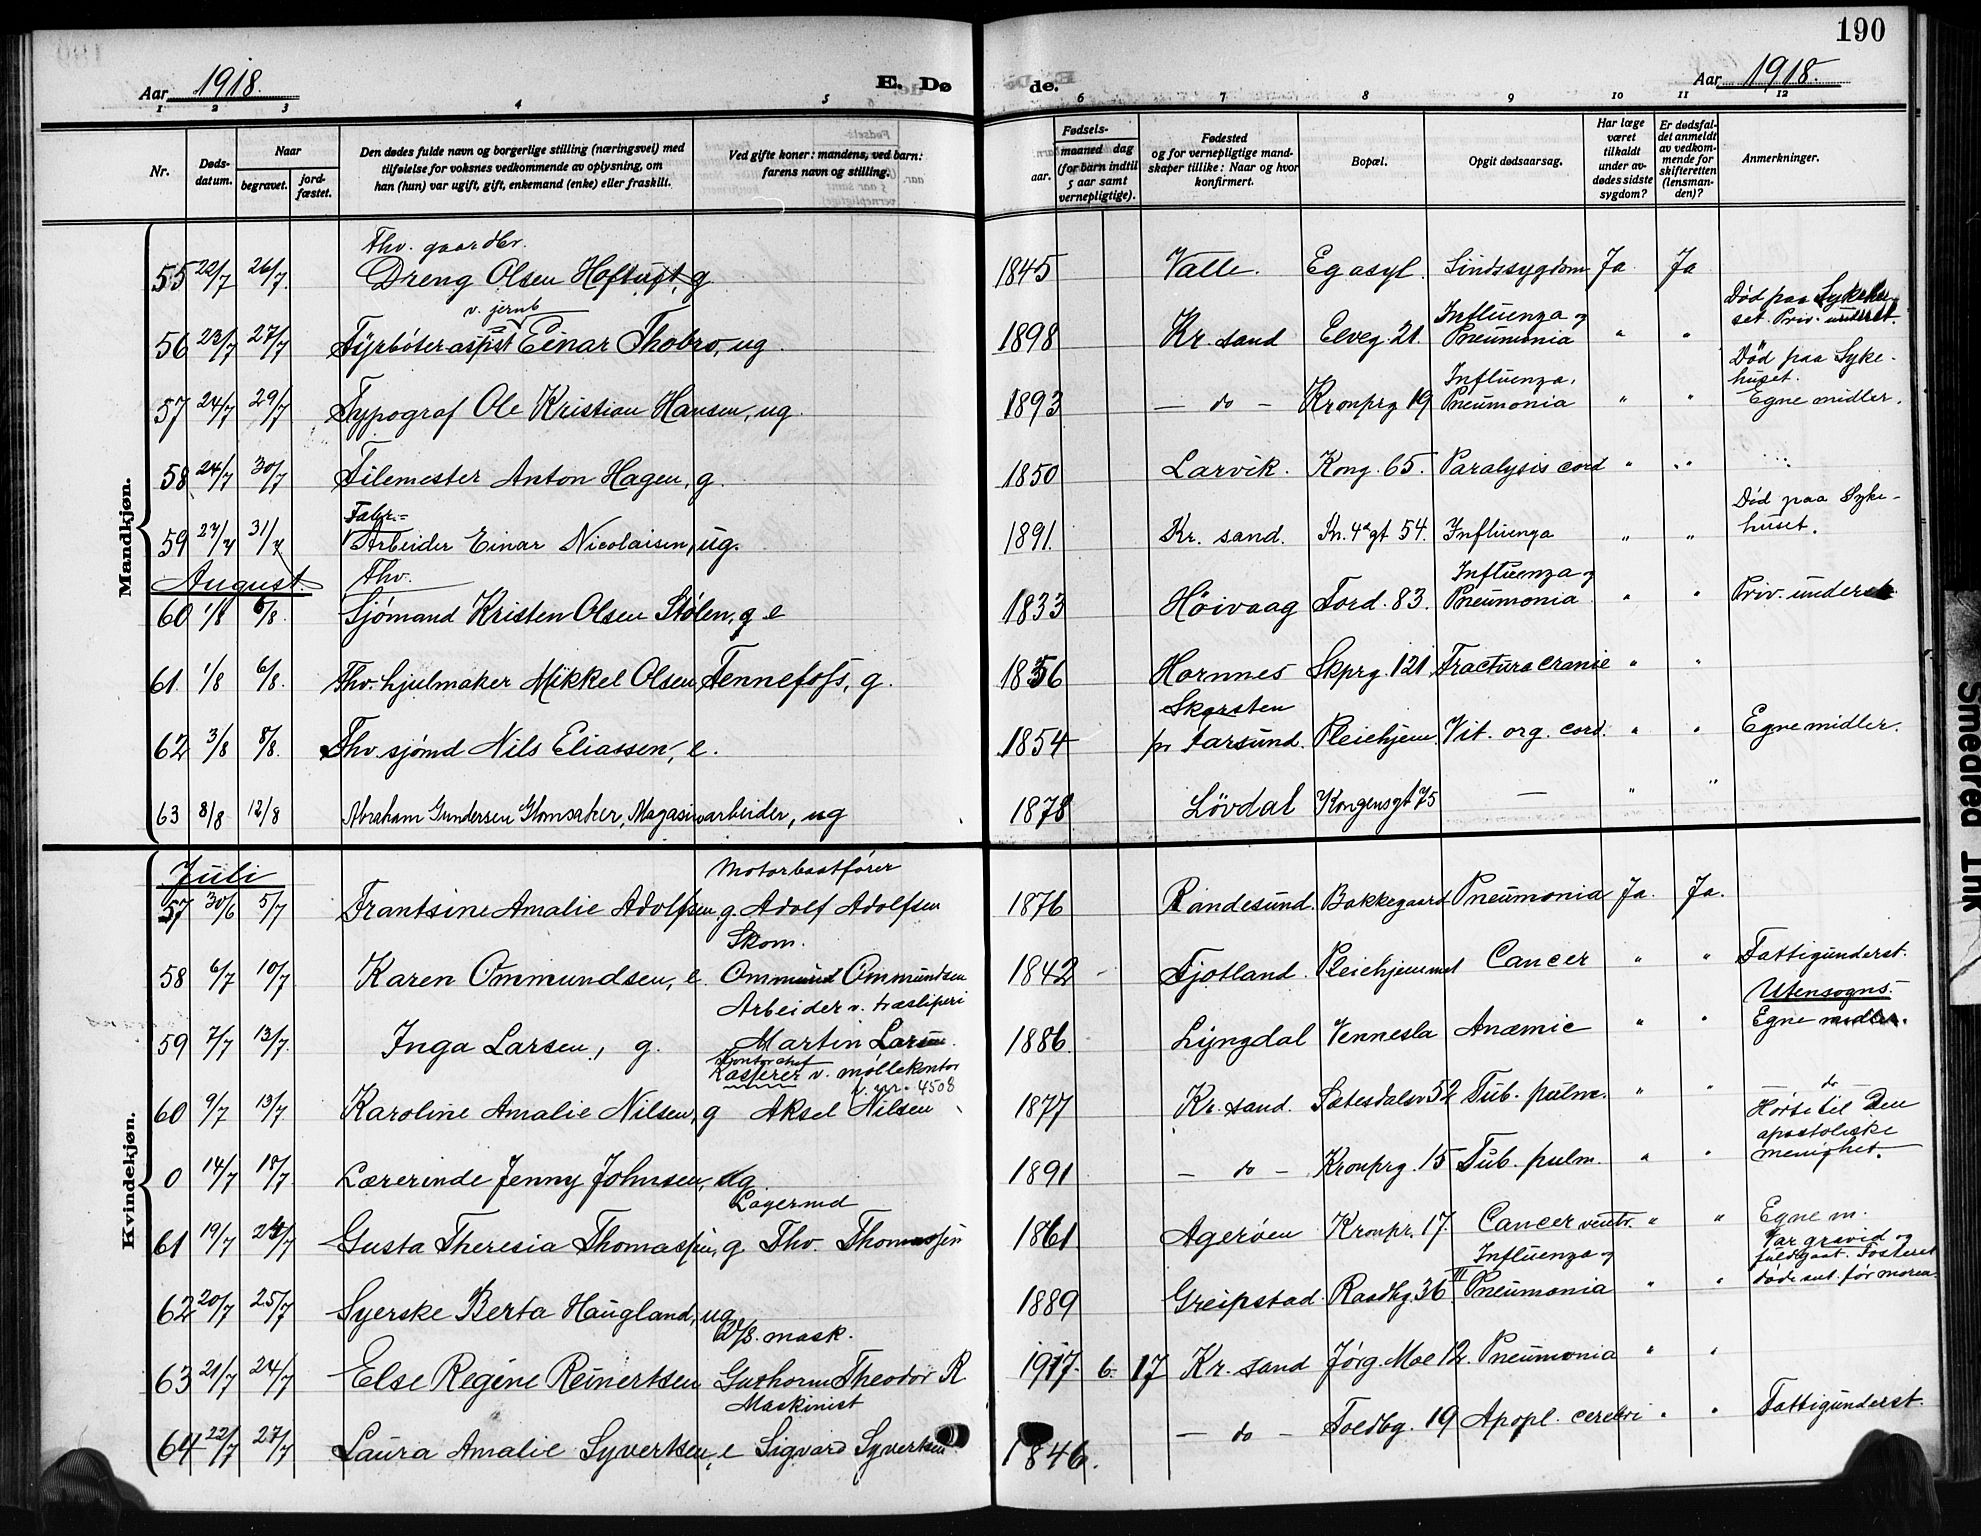 190
Aar 1918. E. Dø
de. Aar 1918.
1 2 3 4 5 6 7 8 9 10 11 12
Nr.
Døds-
datum.
Naar
begravet.
jord-
fæstet.
Den dødes fulde navn og borgerlige stilling (næringsvei) med
tilføielse for voksnes vedkommende av oplysning, om
han (hun) var ugift, gift, enkemand (enke) eller fraskilt.
Ved gifte koner: mandens, ved barn:
farens navn og stilling.
Fødsels-
aar.
maaned dag
(for barn indtil
5 aar samt
vernepligtige).
Fødested
og for vernepligtige mand-
skaper tillike: Naar og hvor
konfirmert.
Bopæl.
Opgit dødsaarsag.
Har læge
været
tilkaldt
under av-
dødes sidste
sygdom?
Er dødsfal-
det anmeldt
av vedkom-
mende for
skifteretten
(lensman-
den)?
Anmerkninger.
Mandkjøn.
Fhv. gaardbr.
55 22/7 26/7. Dreng Olsen Hoftuft, g 1845 Valle. Eg asyl. Sindssygdom Ja Ja
v. jernb
Influenza og
Død paa Sykehu-
set. Priv. underst.
56 23/7 27/7 Fyrbøteraspst Einar Thobro, ug. 1898 Kr. sand Elveg. 21 Pneumonia " "
Influenza,
Død paa Syke-
huset.
57 24/7 29/7 Typograf Ole Kristian Hansen, ug. 1893 — do — Kronprg 19 Pneumonia " " Egne midler.
58 24/7 30/7 Filemester Anton Hagen, g. 1850 Larvik. Kong. 65. Paralysis cord " "
Fabr.=
Død paa Syke-
huset.
59 27/7 31/7 Arbeider Einar Nicolaisen, ug. 1891. Kr. sand. Kr. 4d gt 54. Influenza " "
August.
Fhv.
Influenza og
60 1/8 6/8. Sjømand Kristen Olsen Stølen, g e 1833 Høivaag Tord. 83. Pneumonia " " Priv. underst.
61 1/8 6/8. Fhv. hjulmaker Mikkel Olsen Fennefoss, g. 1856 Hornnes Skprg. 121 Fractura cranie " "
Skarsten
62 3/8 8/8. Fhv. sjømd Nils Eliassen, e. 1854 pr Farsund. Pleiehjem. Vit. org. cord. " " Egne midler.
63 8/8 12/8 Abraham Gundersen Glomsaker, Magasinarbeider, ug 1878 Lövdal Kongensgt 75 — " "
Kvindekjøn.
Juli
Motorbaatfører
57 30/6 5/7 Frantsine Amalie Adolfsen g. Adolf Adolfsen 1876 Randesund. Bakkegaard Pneumonia Ja. Ja.
Skom.
58 6/7 10/7 Karen Ommundsen, e. Ommund Ommundsen 1842 Fjotland. Pleiehjemmet Cancer " " Fattigunderst.
Arbeider v. træsliperi
Utensogns.
59 7/7 13/7. Inga Larsen, g. Martin Larsen. 1886. Lyngdal Vennesla Anæmie " " Egne midler.
Kontorchef
Kasserer v. møllekontor
4508
60 9/7 13/7 Karoline Amalie Nilsen, g Aksel Nilsen 1877 Kr. sand. Sætesdalsv 52 Tub. pulm. " " — do —
Hørte til Den
apostoliske
menighet.
0 14/7 18/7 Lærerinde Jenny Johnsen, ug 1891 — do — Kronprg. 15 Tub. pulm. " "
Lagermd
61 19/7 24/7 Gusta Theresia Thomassen, g Thv. Thomassen 1861 Agerøen Kronpr. 17. Cancer ventr. " " Egne m.
Influenza og
Var gravid og
fuldgaat. Fosteret
døde sml. før moren.
62 20/7 25/7 Syerske Berta Haugland, ug. 1889 Greipstad Raadhg. 36 III Pneumonia " "
D/S. mask.
63 21/7 24/7 Else Regine Reinertsen Guthorm Theodor R 1917. 6. 17 Kr. sand Jørg. Moe 12. Pneumonia " "
Maskinist
64 22/7 27/7 Laura Amalie Syvertsen, e Sigvard Syvertsen 1846. — do — Toldbg. 19 Apopl. cerebri " " Fattigunderst.
Smeared Ink